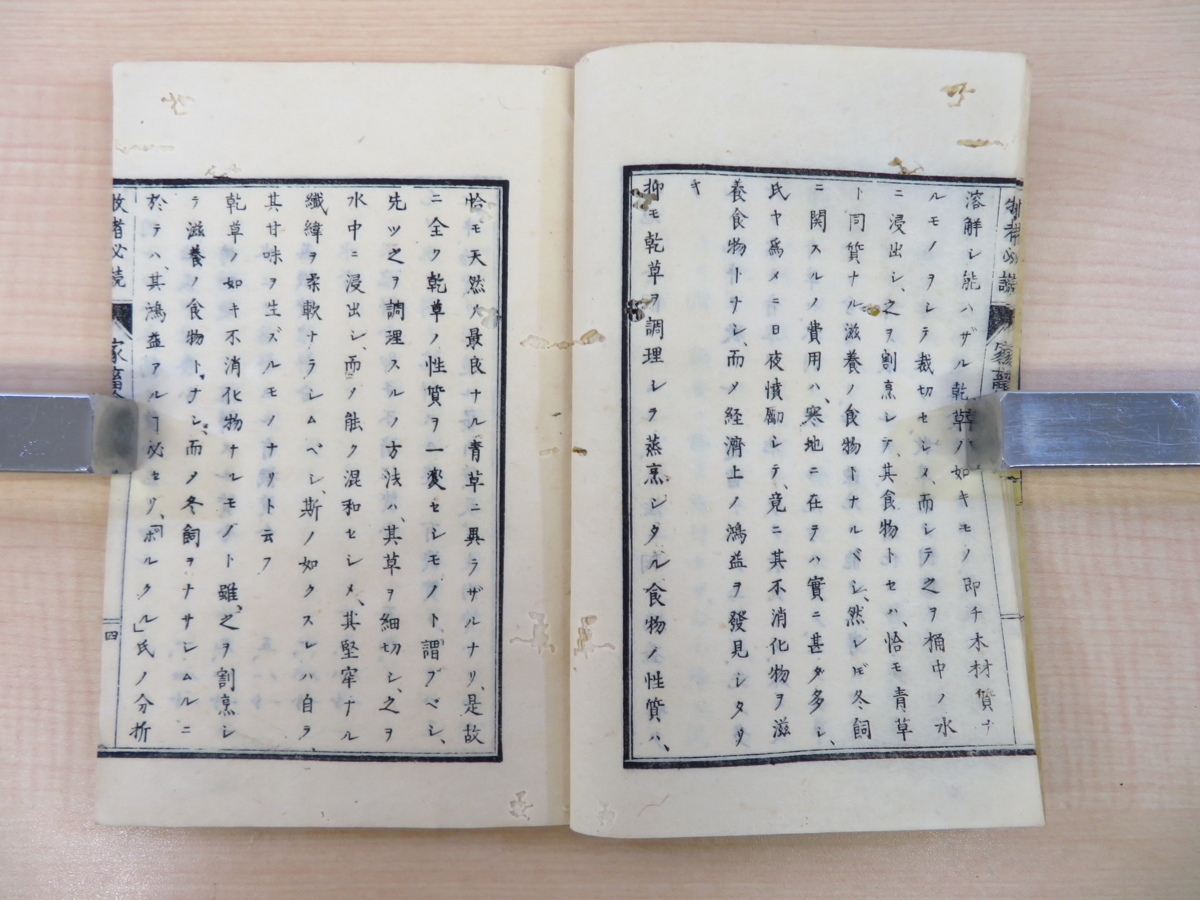 溶解シ能ハザル乾草ノ如キモノ即チ木材質ナ
ルモノヲシテ裁切セシメ、而シテ之ヲ桶中ノ水
ニ浸出シ、之ヲ割烹シテ、其食物トセハ、恰モ青草
ト同質ナル滋養ノ食物トナルベシ、然レㄪ冬飼
ニ関スルノ費用ハ、寒地ニ在テハ實ニ甚ダ多シ、
氏ヤ爲メニ日夜憤勵シテ、竟ニ其不消化物ヲ滋
養食物トナシ、而メ経濟上ノ鴻益ヲ發見シタリ
キ
抑モ乾草ヲ調理シテ蒸烹シタル食物ノ性質ハ、
恰モ天然ノ最良ナル青草ニ異ラザルナリ、是故
ニ全ク乾草ノ性質ヲ一変セシモノト謂フベシ、
先ツ之ヲ調理スルノ方法ハ、其草ヲ細切シ、之ヲ
水中ニ浸出シ、而メ能ク混和セシメ、其堅窂ナル
纖緯ヲ柔軟ナラシムベシ、斯ノ如クスレハ自ラ
其甘味ヲ生ズルモノナリト云フ
乾草ノ如キ不消化物ナルモノト雖、之ヲ割烹シ
ラ滋養ノ食物トナシ、而メ冬飼ヲナサシムルニ
於テハ、其鴻益アルㄱ必セリ、「ボルクル」氏ノ分析
牧者必読
四